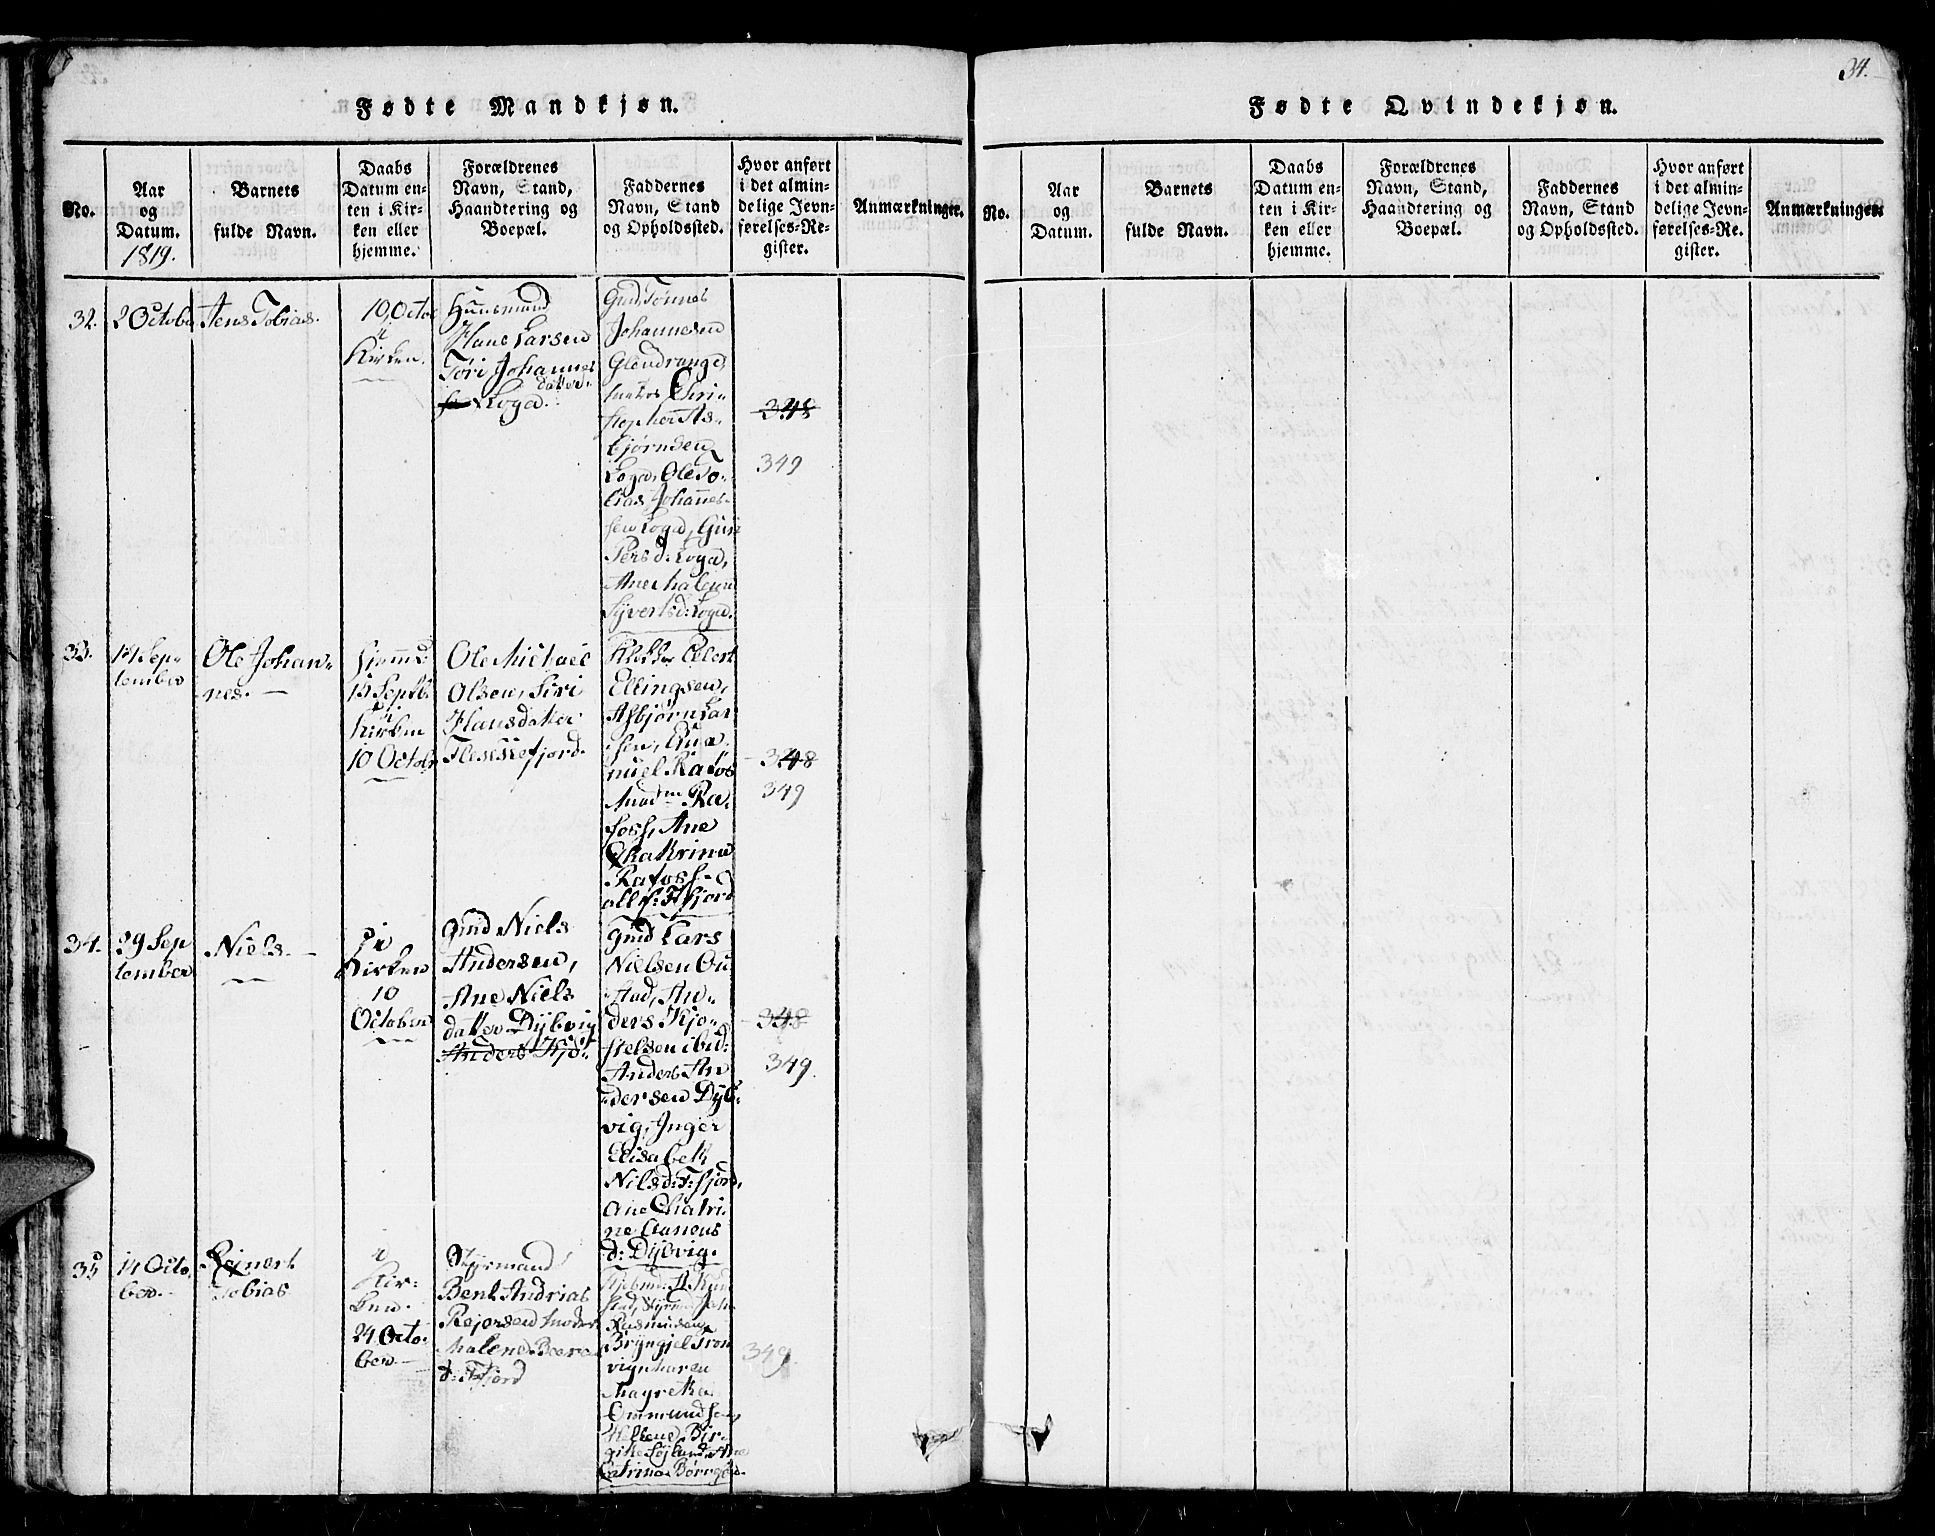 34.
Fødte Mandkjøn.
No.
Aar
og
Datum.
1819.
Barnets
fulde Navn.
Daabs
Datum en-
ten i Kir-
ken eller
hjemme.
Forældrenes
Navn, Stand,
Haandtering og
Boepæl.
Faddernes
Navn, Stand
og Opholdssted.
Hvor anført
i det almin-
delige Jevn-
førelses-Re-
gister.
Anmærkninger.
32.
2 Octobr
Jens Tobias.
10, Octo
i
Kirken.
Huusmand
Hans Larsen
Tori Johannes
datter
Loga.
Gmd Tønnes
Johannesen
Glendrange,
Siri-
As-
bjørnsen
Loga, Ole To-
bias Johannes-
sen Loga, Guri
Pers d: Loga,
Ane Malene
Syverts d: Loga.
348
349
33.
14 Sep-
tember
Ole Johan-
nes.
hjemme
15 Septb
i
Kirken
10 Octobr
Ole Michael
Olsen, Siri
Hansdatter
Fleskefjord.
Elert
Ellingsen,
Asbjørn Lar
sen,
Rafos
Mad^m Ra-
foss, Ane
Chatrine
Rafoss-
all f: Ffjord
348
349
34.
29 Sep
tember
Niels.
i
Kirken
10
October
Gmd Niels
Andersen,
Ane Niels
datter Dybvig
Anders Kjø-
Gmd Lars
Nielsen Ou
stad, An-
ders Kjø-
stelsen ibid:
Anders An
dersen Dyb-
vig, Inger
Elisabeth
Nilsd: F:fjord,
Ane Chatri-
ne Aanens
d: Dybvig.
348
349.
35
14 Octo
ber
Rejnert
Tobias
i
Kir-
ken.
24 Octo-
ber
Styrmand
Bent Andrias
Rejersen Moder
Malene Beere
d: Ffjord
Rasmusen,
Bryngjel Tron
vign
Ommundsen,
Hellene Bir-
gitte
Catrine
349
Fødte Qvindekjøn.
No.
Aar
og
Datum.
Barnets
fulde Navn.
Daabs
Datum en-
ten i Kir-
ken eller
hjemme.
Forældrenes
Navn, Stand,
Haandtering og
Boepæl.
Faddernes
Navn, Stand
og Opholdssted.
Hvor anført
i det almin-
delige Jevn-
førelses-Re-
gister.
Anmærkninger.